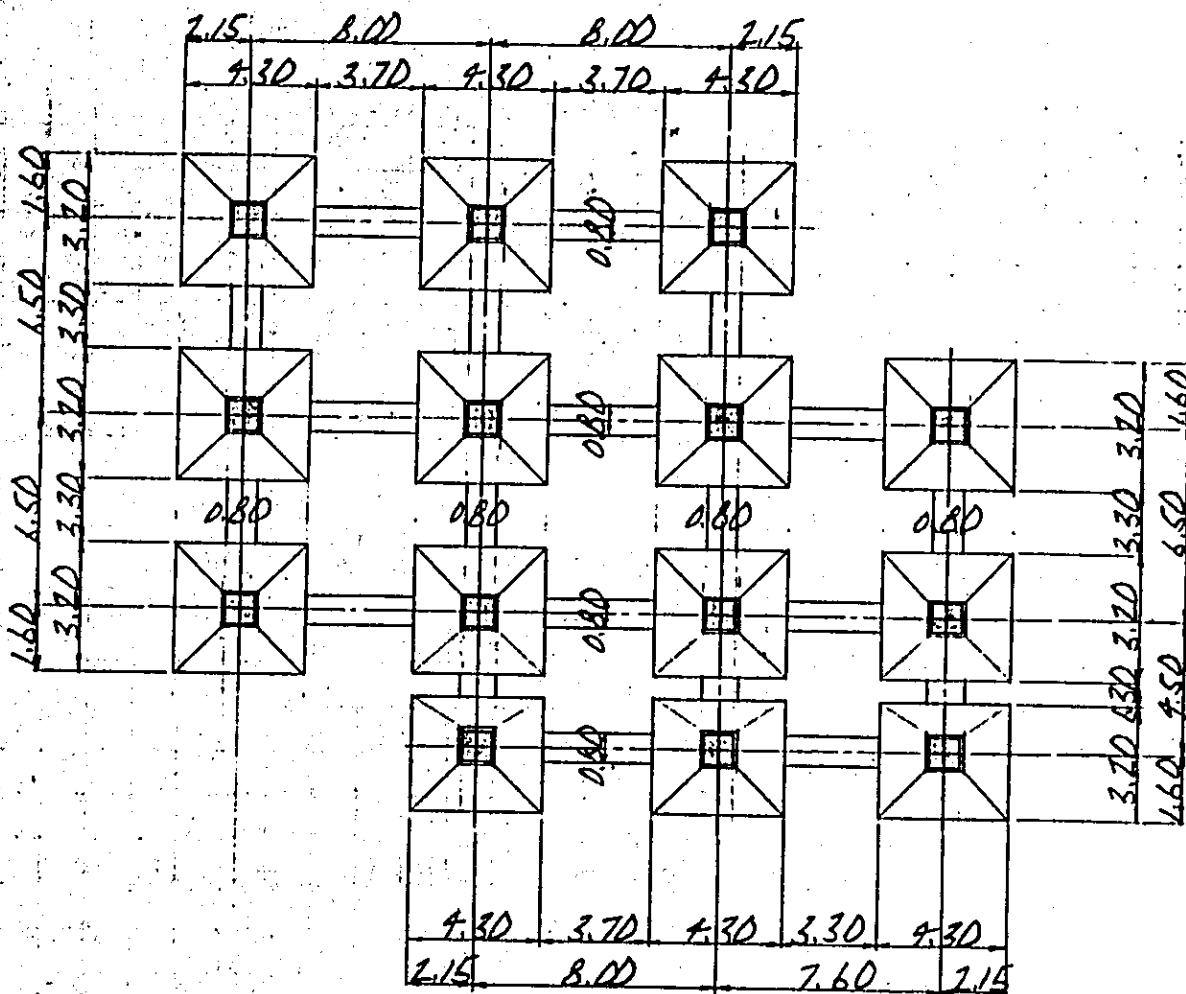 2.15 8.00 8.00 2.15
4.30 3.70 4.30 3.70 4.30
1.60 6.50 6.50 1.60
3.20 3.30 3.20 3.30 3.20
0.80
0.80
0.80 0.80 0.80 0.80
0.80
0.80
3.20 3.30 3.20 1.30 3.20
1.60 6.50 4.50 1.60
4.30 3.70 4.30 3.30 4.30
2.15 8.00 7.60 2.15